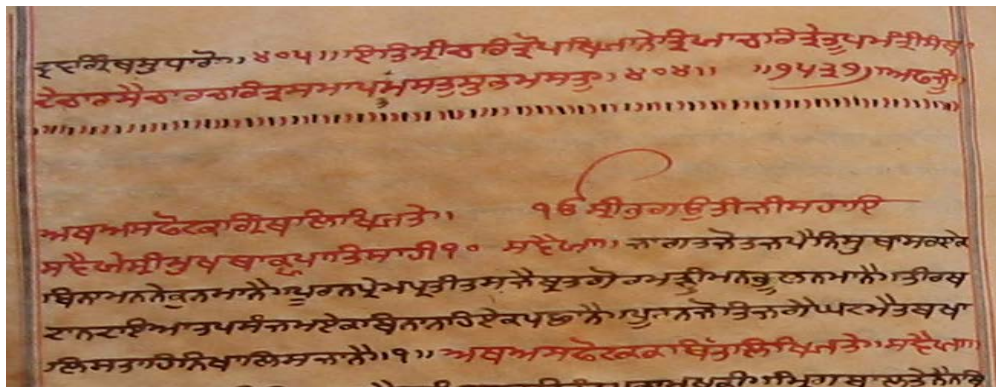 ਦ੍ਵਗ੍ਰਿੰਥਸੁਧਾਰੋ੪੦੫॥ਇਤਿਸ੍ਰੀਚਰਿਤ੍ਰੋਪਖ੍ਯਾਨੇਤ੍ਰਿਯਾਚਰਿਤ੍ਰੇਭੂਪਮੰਤ੍ਰੀਸੰਬਾ
ਦੇਚਾਰਸੈਚਾਰਚਰਿਤ੍ਰਸਮਾਪਤੰਮਸਤੁਸੁਭਮਸਤੁ੪੦੪॥ ॥੧੫੩੭॥ਅਫਜੂ॥
ਅਥਅਸਫੋਟਕਕਬਿਤਲਿਖ੍ਯਤੇ॥ ੴ ਸ੍ਰੀਭਗਉਤੀਜੀਸਹਾਇ
ਸਵੈਯੇਸ੍ਰੀਮੁਖਬਾਕ੍ਯਪਾਤਿਸਾਹੀ੧੦ ਸਵੈਯਾ॥ ਜਾਗਤਜੋਤਜਪੈਨਿਸੁਬਾਸਰਏਕ
ਬਿਨਾਮਨਨੈਕੁਨਮਾਨੈ॥ਪੂਰਨਪ੍ਰੇਮਪ੍ਰਤੀਤਸਜੈਬ੍ਰਤਗੋਰਮੜ੍ਹੀਮਨਭੂਲਨਮਾਨੈ॥ਤੀਰਥ
ਦਾਨਦਇਆਤਪਸੰਜਮਏਕਬਿਨਾਨਹਿਏਕਪਛਾਨੈ॥ਪੂਰਨਜੋਤਿਜਗੈਘਟਮੈਤਬਖਾ
ਲਿਸਤਾਹਿਨਿਖਾਲਿਸਜਾਨੈ॥੧॥ਅਥਅਸਫੋਟਕਕਬਿੱਤਲਿਖ੍ਯਤੇ॥ਸਵੈਯਾ॥